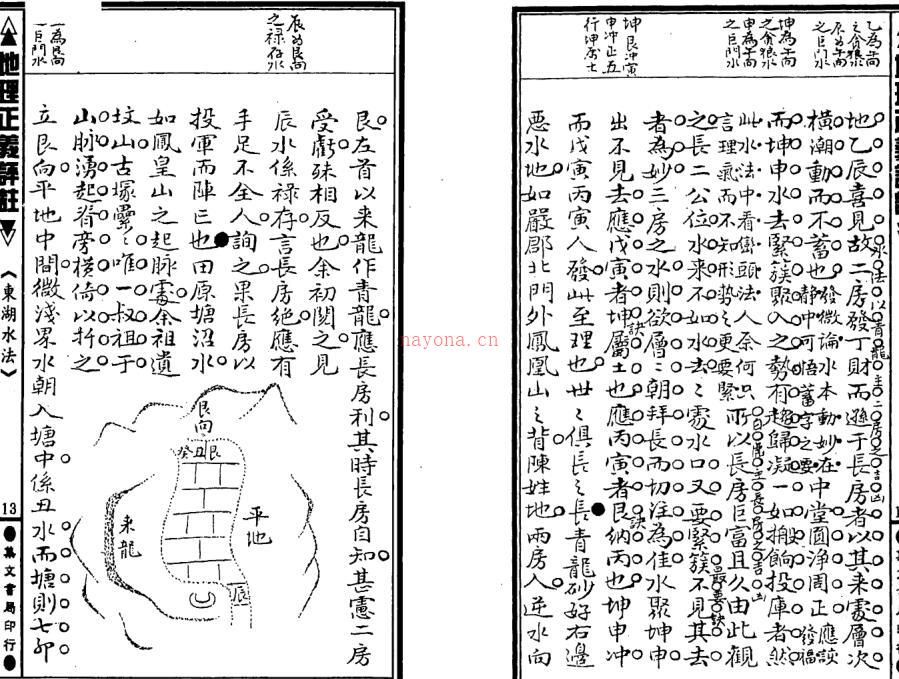 乙為午向
之貪狼水
辰為午向
之巨門水
坤為午向
之貪狼水
申為午向
之巨門水
坤艮冲寅
申冲正五
行坤屬土
地乙辰喜見故二房發丁財而遜于長房者以其来處層次
橫潮動而不蓄也
而坤申水去緊簇聚入之勢有趨歸凝一如捐餉投庫者然
此水法中看巒頭法人余何只
言理氣而不知形勢之更要緊
所以長房巨富且久由此觀
之長二公位水来不如水去之處水口又要緊簇不見其去
者為妙三房之水則欲層之朝拜長而切注為佳水聚坤申
出不見去應戊寅者坤屬土也應丙寅者艮納丙也坤申冲
而戊寅丙寅人發此至理也世之俱長之長青龍砂好右邊
惡水地如嚴郡北門外鳳凰山之背陳姓地兩房人逆水向
辰為艮向
之祿存水
一為艮向
一巨門水
艮左首以来龍作青龍應長房利其時長房自知甚憲二房
受虧殊相反也余初閱之見
辰水係祿存言長房絶應有
手足不全人詢之果長房以
投軍而陣亡也田原塘沼水
如鳳皇山之起脉處余祖遺
坟山古塚纍之唯一叔祖于
山脉湧起脊旁横倚以扦之
立艮向平地中間微淺界水朝入塘中係丑水而塘則七卯
艮向
艮丑癸
平地
来龍
辰
地理正義評註
《東湖水法》
13
集文書局印行
nayona.cn